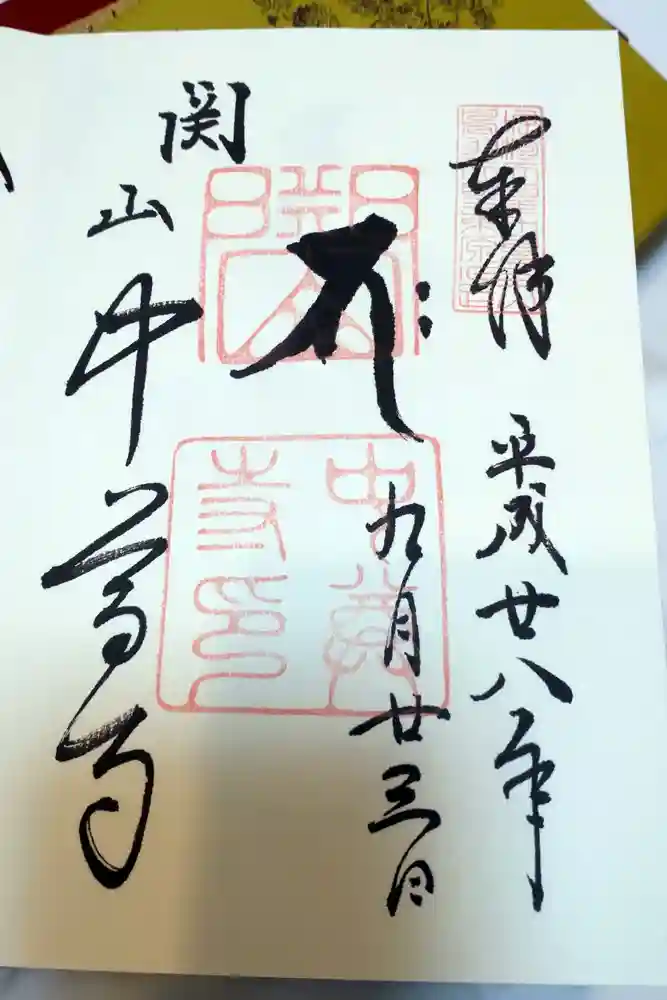 奉拝
平成廿八年
九月廿三日
関山中尊寺
中尊
寺印